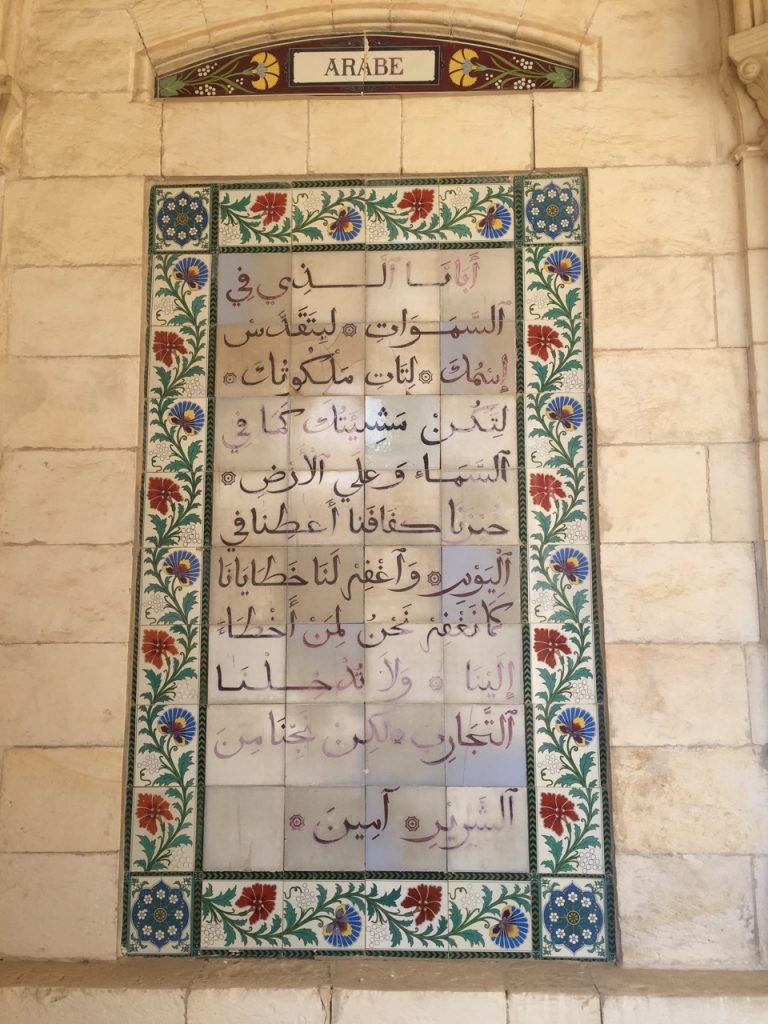 ARABE
أَبَانَا ٱلَّذِي فِي
ٱلسَّمَوَاتِ ۞ لِيَتَقَدَّسْ
إِسْمُكَ ۞ لِتَاتِ مَلَكُوتُكَ ۞
لِتَكُنْ مَشِيْئَتُكَ كَمَا فِي
ٱلسَّمَاءِ وَعَلَي ٱلاَرْضِ ۞
خبزنا كفَافَنا أَعطِنا في
ٱلْيَوْمِ ۞ وَٱغْفِرْ لَنَا خَطَايَانَا
كَمَا نَغْفِرْ نَحْنُ لِمَنْ أَخْطَاءَ
إِلَيْنَا ۞ وَلاَ تُدْخِلْنَا
ٱلتَّجَارِبِ لَكِنْ نَجِّنَا مِنَ
ٱلشَّرِيْرِ ۞ آمِينَ ۞